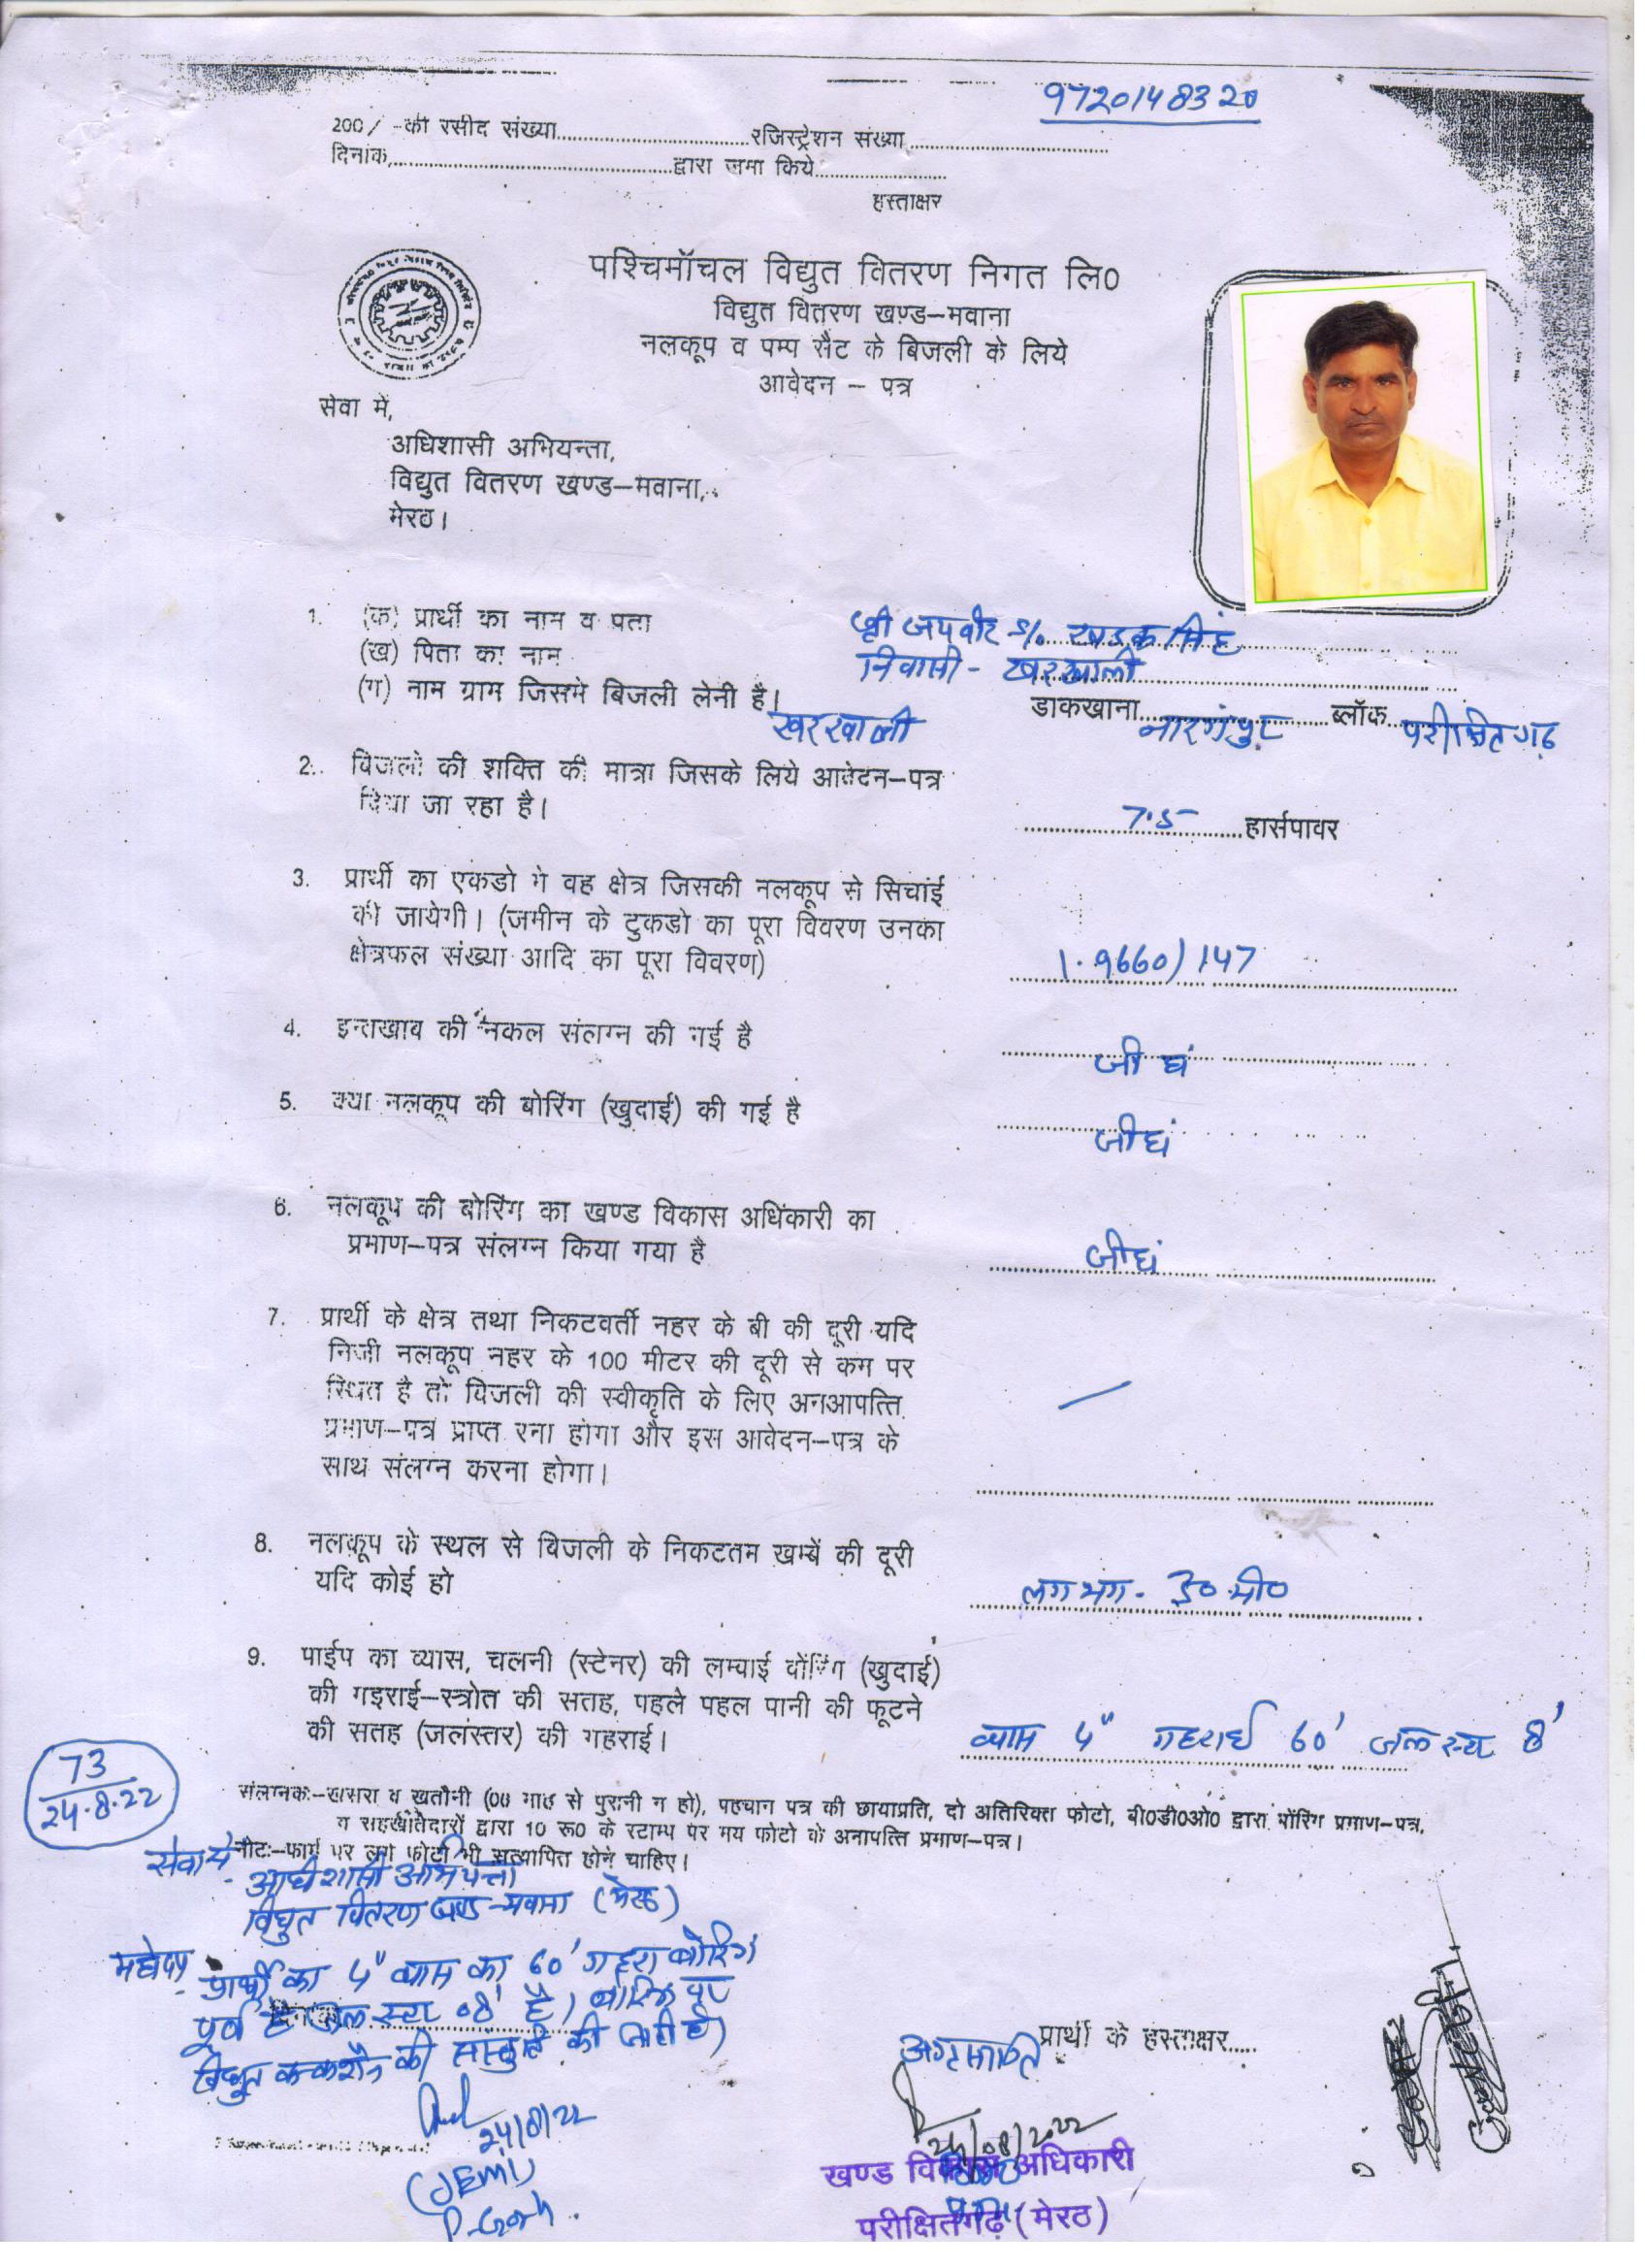 9720148320
200/-की रसीद संख्या..........रजिस्ट्रेशन संख्या..........
दिनांक..........द्वारा जमा किये..........
हस्ताक्षर
पश्चिमॉचल विद्युत वितरण निगत लि0
विद्युत वितरण खण्ड–मवाना
नलकूप व पम्प सैट के बिजली के लिये
आवेदन – पत्र
सेवा में,
अधिशासी अभियन्ता,
विद्युत वितरण खण्ड–मवाना,
मेरठ।
1. (क) प्रार्थी का नाम व पता श्री जयवीर S/o खडक सिंह
(ख) पिता का नाम निवासी - खरखाली
(ग) नाम ग्राम जिसमे बिजली लेनी है। खरखाली डाकखाना नारंगपुर ब्लॉक परीक्षितगढ़
2. विजली की शक्ति की मात्रा जिसके लिये आवेदन–पत्र
दिया जा रहा है। 7.5 हार्सपावर
3. प्रार्थी का एकडो मे वह क्षेत्र जिसकी नलकूप से सिचांई
की जायेगी। (जमीन के टुकडो का पूरा विवरण उनका
क्षेत्रफल संख्या आदि का पूरा विवरण) 1.9660)147
4. इन्तखाव की नकल संलग्न की गई है जी हां
5. क्या नलकूप की बोरिंग (खुदाई) की गई है जी हां
6. नलकूप की बोरिंग का खण्ड विकास अधिंकारी का
प्रमाण–पत्र संलग्न किया गया है जी हां
7. प्रार्थी के क्षेत्र तथा निकटवर्ती नहर के बी की दूरी यदि
निजी नलकूप नहर के 100 मीटर की दूरी से कम पर
स्थित है तो विजली की स्वीकृति के लिए अनआपत्ति
प्रमाण–पत्र प्राप्त रना होगा और इस आवेदन–पत्र के
साथ संलग्न करना होगा।
8. नलकूप के स्थल से विजली के निकटतम खम्बें की दूरी
यदि कोई हो लगभग - 30 मी०
9. पाईप का व्यास, चलनी (स्टेनर) की लम्वाई वोरिंग (खुदाई)
की गइराई–स्त्रोत की सतह, पहले पहल पानी की फूटने
की सतह (जलंस्तर) की गहराई। व्यास 4" गहराई 60' जल स्तर 8'
73
24.8.22
संलग्नकः–खसरा व खतौनी (06 माह से पुरानी न हो), पहचान पत्र की छायाप्रति, दो अतिरिक्त फोटो, बी0डी0ओ0 द्वारा बोरिंग प्रमाण–पत्र,
व सहखातेदारों द्वारा 10 रू0 के स्टाम्प पर मय फोटो के अनापत्ति प्रमाण–पत्र।
नोटः–फार्म पर लगा फोटो भी सत्यापित होने चाहिए।
सेवा मे
अधिशासी अभियन्ता
विद्युत वितरण खण्ड - मवाना (मेरठ)
महोदय,
प्रार्थी का 4" व्यास का 60' गहरा बोरिंग
पूर्व है जल स्तर 08' है। बोरिंग पर
विद्युत कनेक्शन की संस्तुति की जाती है।
24/8/22
(JEMI)
P. Garh.
अग्रसारित
प्रार्थी के हस्ताक्षर.....
24/08/2022
खण्ड विकास अधिकारी
परीक्षितगढ़ (मेरठ)